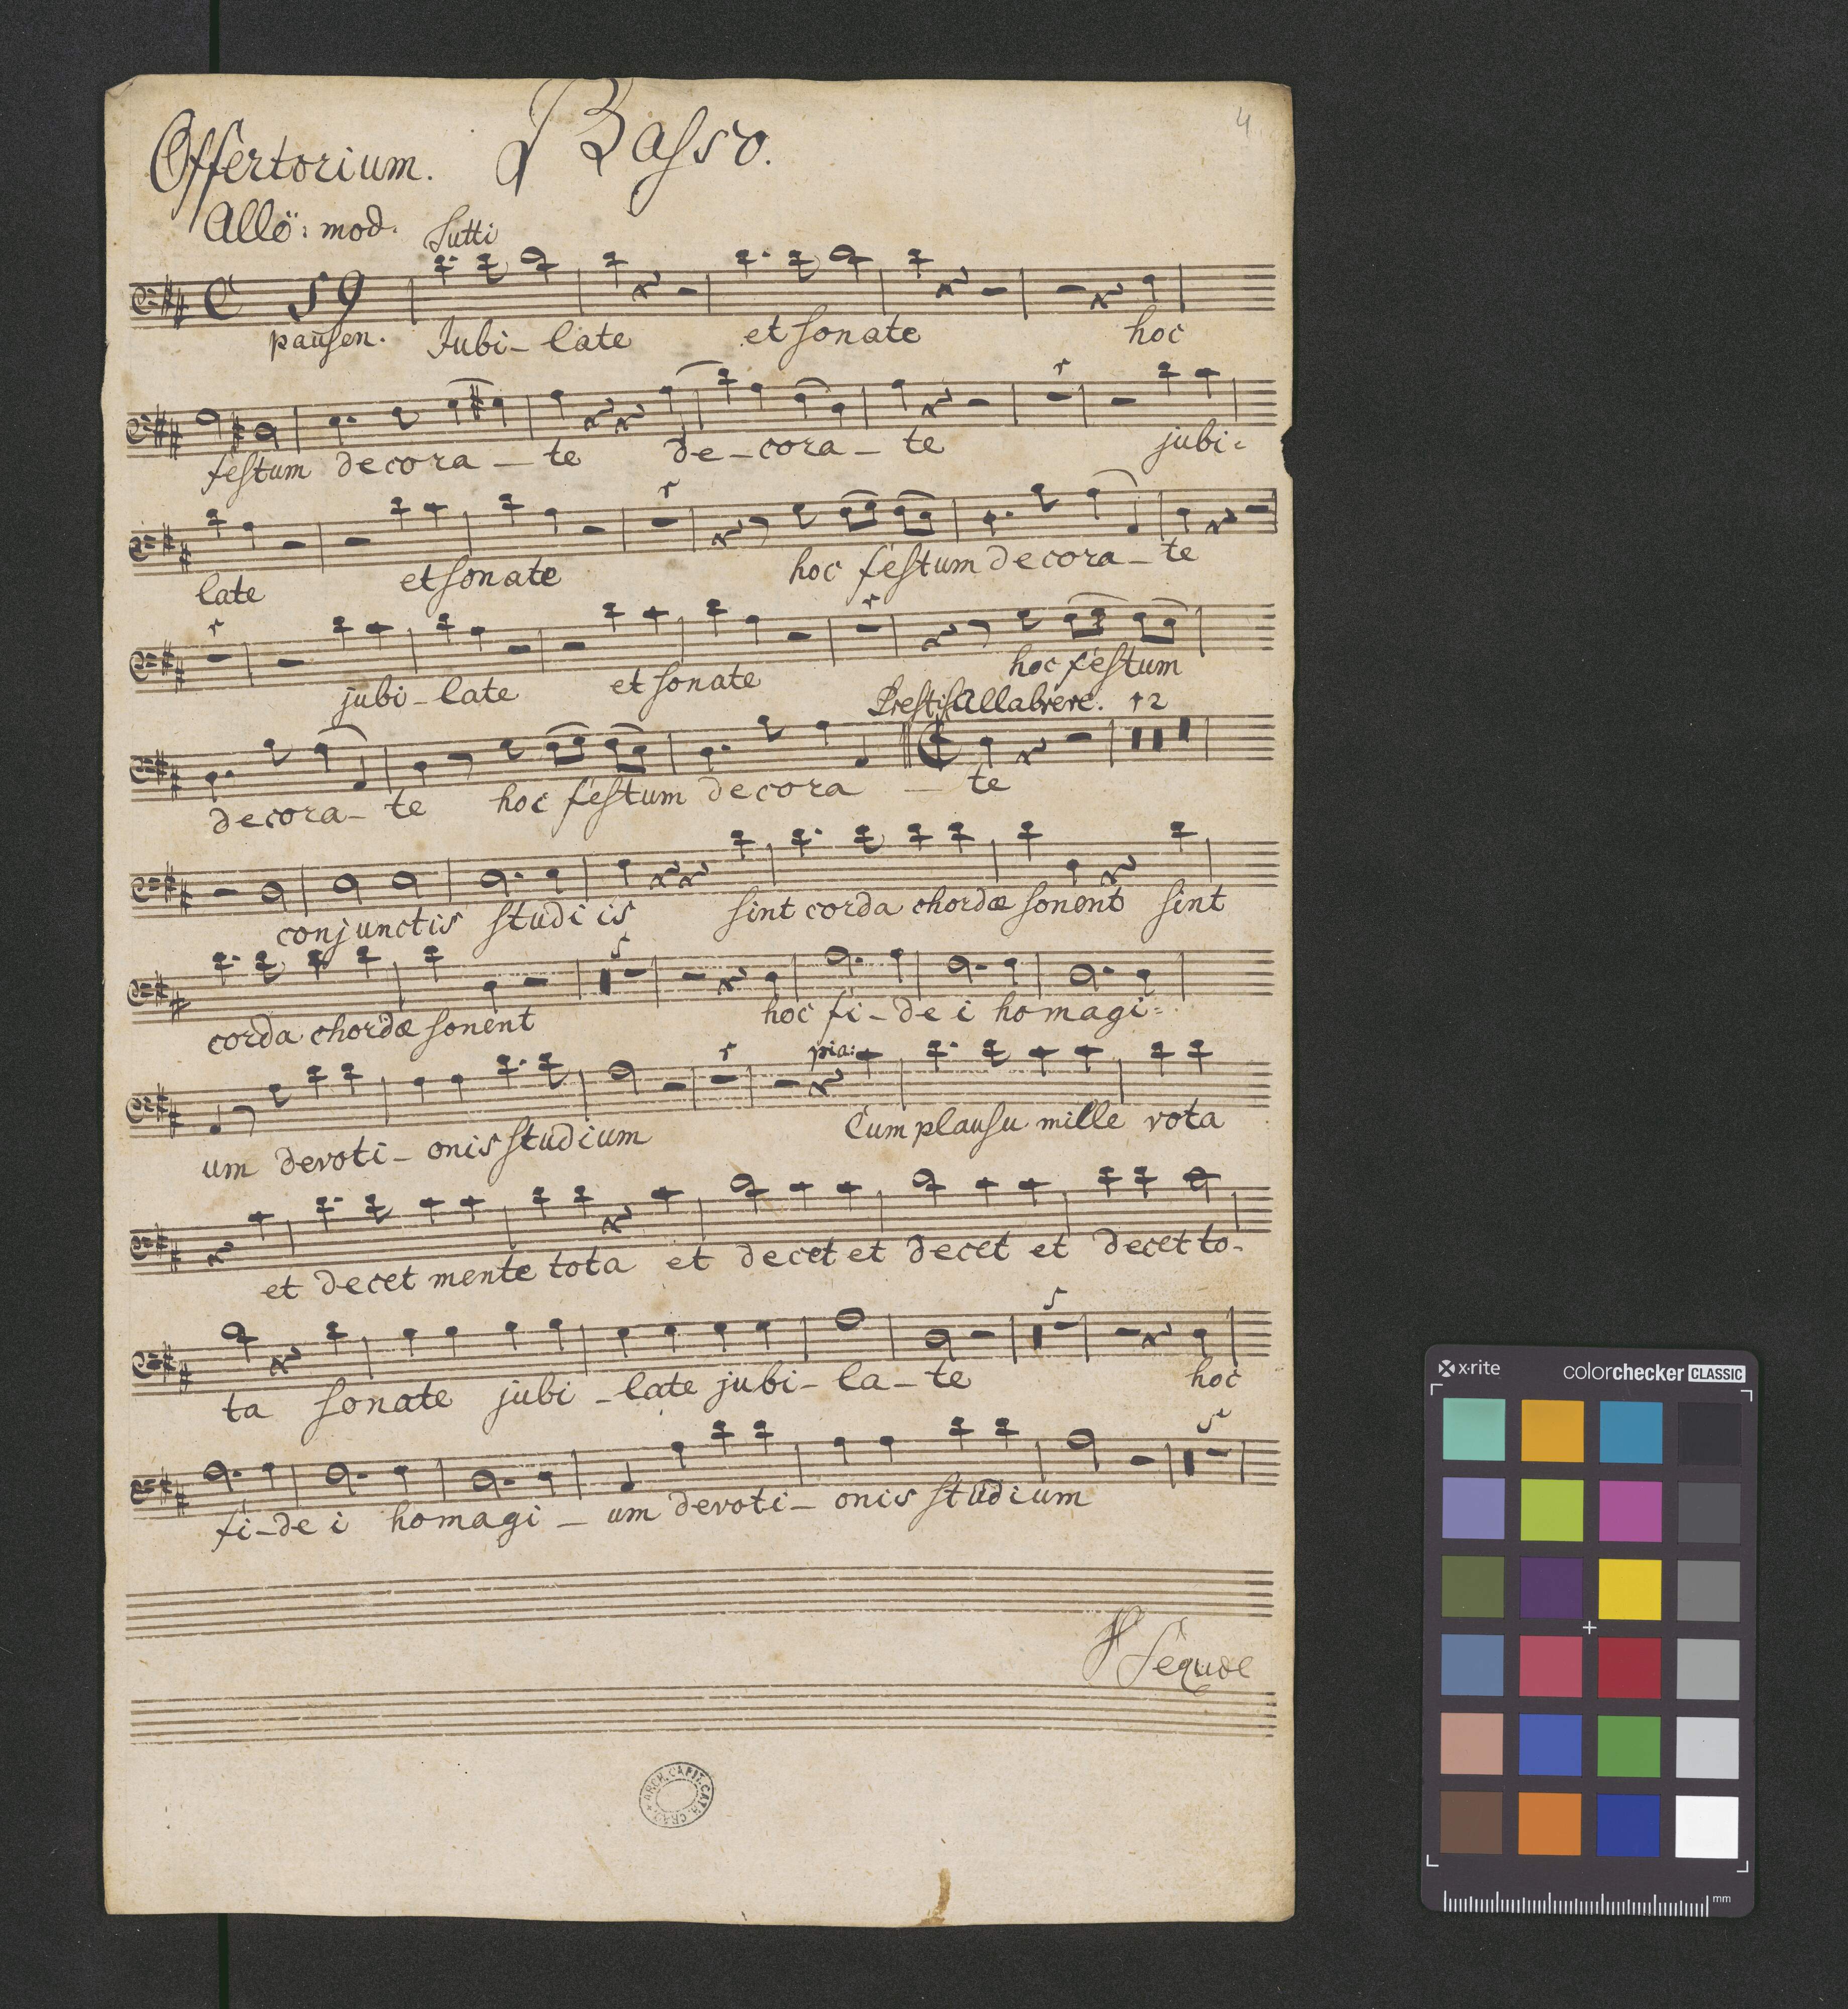 4
Offertorium. Basso.
Allo: mod. Tutti
59
pausen. Jubi- late et sonate hoc
festum decora - te de - cora - te jubi=
late et sonate hoc festum decora - te
jubi - late et sonate hoc festum
Allabreve. 12
decora - te hoc festum decora - te
conjunctis studiis sint corda chordæ sonent sint
5
corda chordæ sonent hoc fi - dei homagi=
pia:
um devoti - onis studium Cum plausu mille vota
et decet mente tota et decet et decet et decet to-
5
ta sonate jubi - late jubi - la - te hoc
5
fi - dei homagi - um devoti - onis studium
ARCH. CAPIT. CATH. CRAC.
x·rite colorchecker CLASSIC
mm